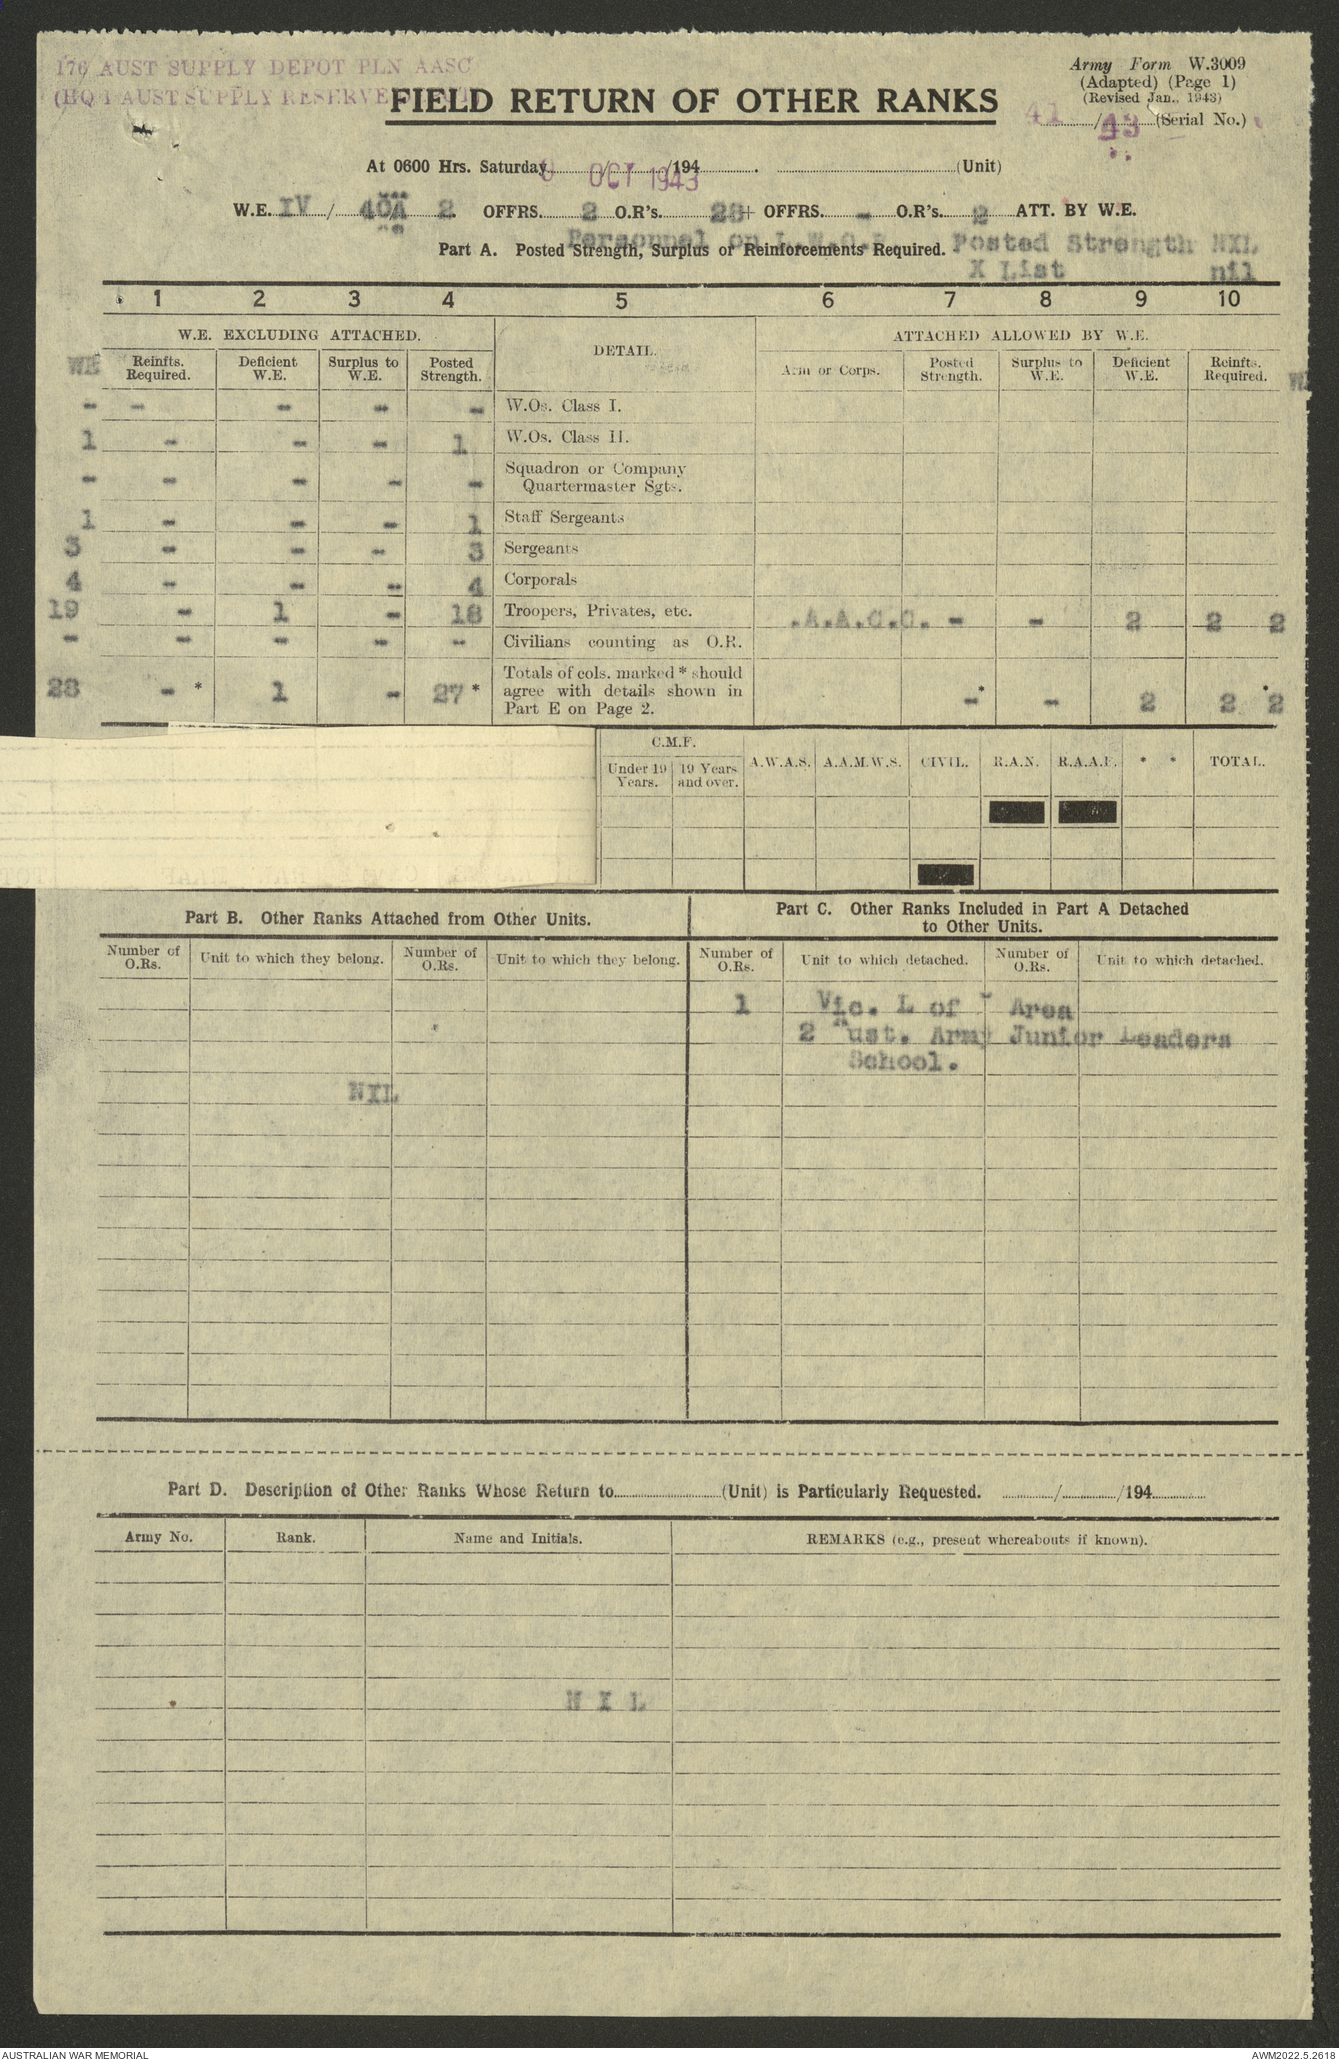 176 AUST SUPPLY DEPOT PLN AASC
(HQ 1 AUST SUPPLY RESERVE
Army Form W.3009
(Adapted) (Page 1)
(Revised Jan., 1943)
41/43 (Serial No.)
FIELD RETURN OF OTHER RANKS
At 0600 Hrs. Saturday OCT 1943 /194 . (Unit)
W.E. IV / 40A / 2 OFFRS. 2 O.R's. 28 + OFFRS. - O.R's. 2 ATT. BY W.E.
Personnel on Posted Strength NXL
Part A. Posted Strength, Surplus or Reinforcements Required.
X List nil
1 2 3 4 5 6 7 8 9 10
W.E. EXCLUDING ATTACHED. DETAIL. ATTACHED ALLOWED BY W.E.
WE Reinfts. Required. Deficient W.E. Surplus to W.E. Posted Strength. Arm or Corps. Posted Strength. Surplus to W.E. Deficient W.E. Reinfts. Required. WE
- - - - - W.Os. Class I.
1 - - - 1 W.Os. Class II.
- - - - - Squadron or Company
Quartermaster Sgts.
1 - - - 1 Staff Sergeants
3 - - - 3 Sergeants
4 - - - 4 Corporals
19 - 1 - 18 Troopers, Privates, etc. .A.A.C.C. - - 2 2 2
- - - - - Civilians counting as O.R.
28 - * 1 - 27 * Totals of cols. marked * should
agree with details shown in
Part E on Page 2. -* - 2 2* 2
C.M.F.
Under 19 Years. 19 Years and over. A.W.A.S. A.A.M.W.S. CIVIL. R.A.N. R.A.A.F. * * TOTAL.
Part B. Other Ranks Attached from Other Units.
Part C. Other Ranks Included in Part A Detached
to Other Units.
Number of O.Rs. Unit to which they belong. Number of O.Rs. Unit to which they belong. Number of O.Rs. Unit to which detached. Number of O.Rs. Unit to which detached.
1 Vic. L of Area
2 Aust. Army Junior Leaders
School.
NIL
Part D. Description of Other Ranks Whose Return to (Unit) is Particularly Requested. / /194
Army No. Rank. Name and Initials. REMARKS (e.g., present whereabouts if known).
N I L
AUSTRALIAN WAR MEMORIAL AWM2022.5.2618